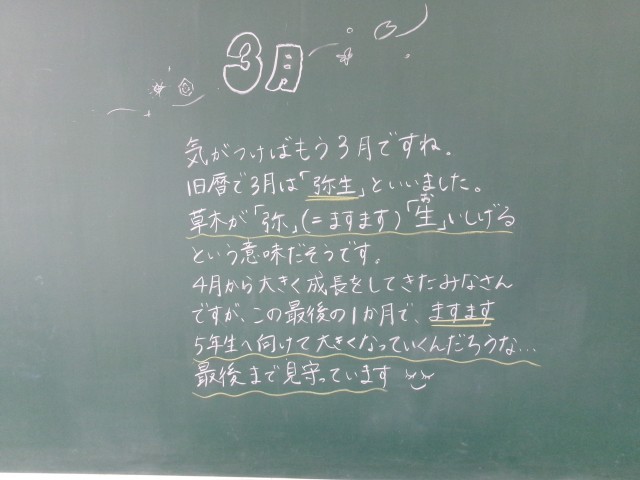 3月
気がつけばもう3月ですね。
旧暦で3月は「弥生」といいました。
草木が「弥」(=ますます)「生」いしげる
お
という意味だそうです。
4月から大きく成長をしてきたみなさん
ですが、この最後の1か月で、ますます
5年生へ向けて大きくなっていくんだろうな…
最後まで見守っています